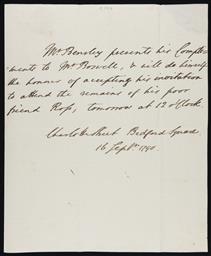 Mr Bensley presents his Comple-
ments to Mr Boswell, & will do himself
the honour of accepting his invitation
to attend the remains of his poor
friend Ross, tomorrow at 12 o'Clock.
Charlotte Street Bedford Square
16 Septr 1790.